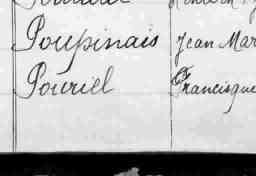 Poupinais Jean Mar
Pouriel Francisque